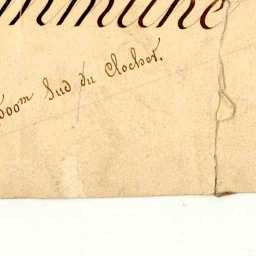 mmune
00m Sud du Clocher.